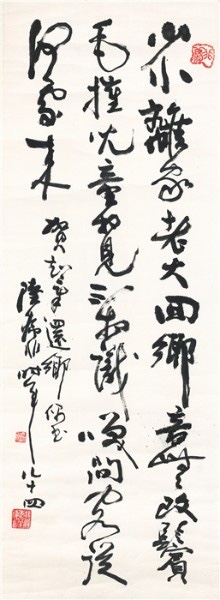 少小離家老大回鄉音無改鬢
毛摧兒童相見不相識咲問客從
何處來
賀知章還鄉偶書
陸時年八十四